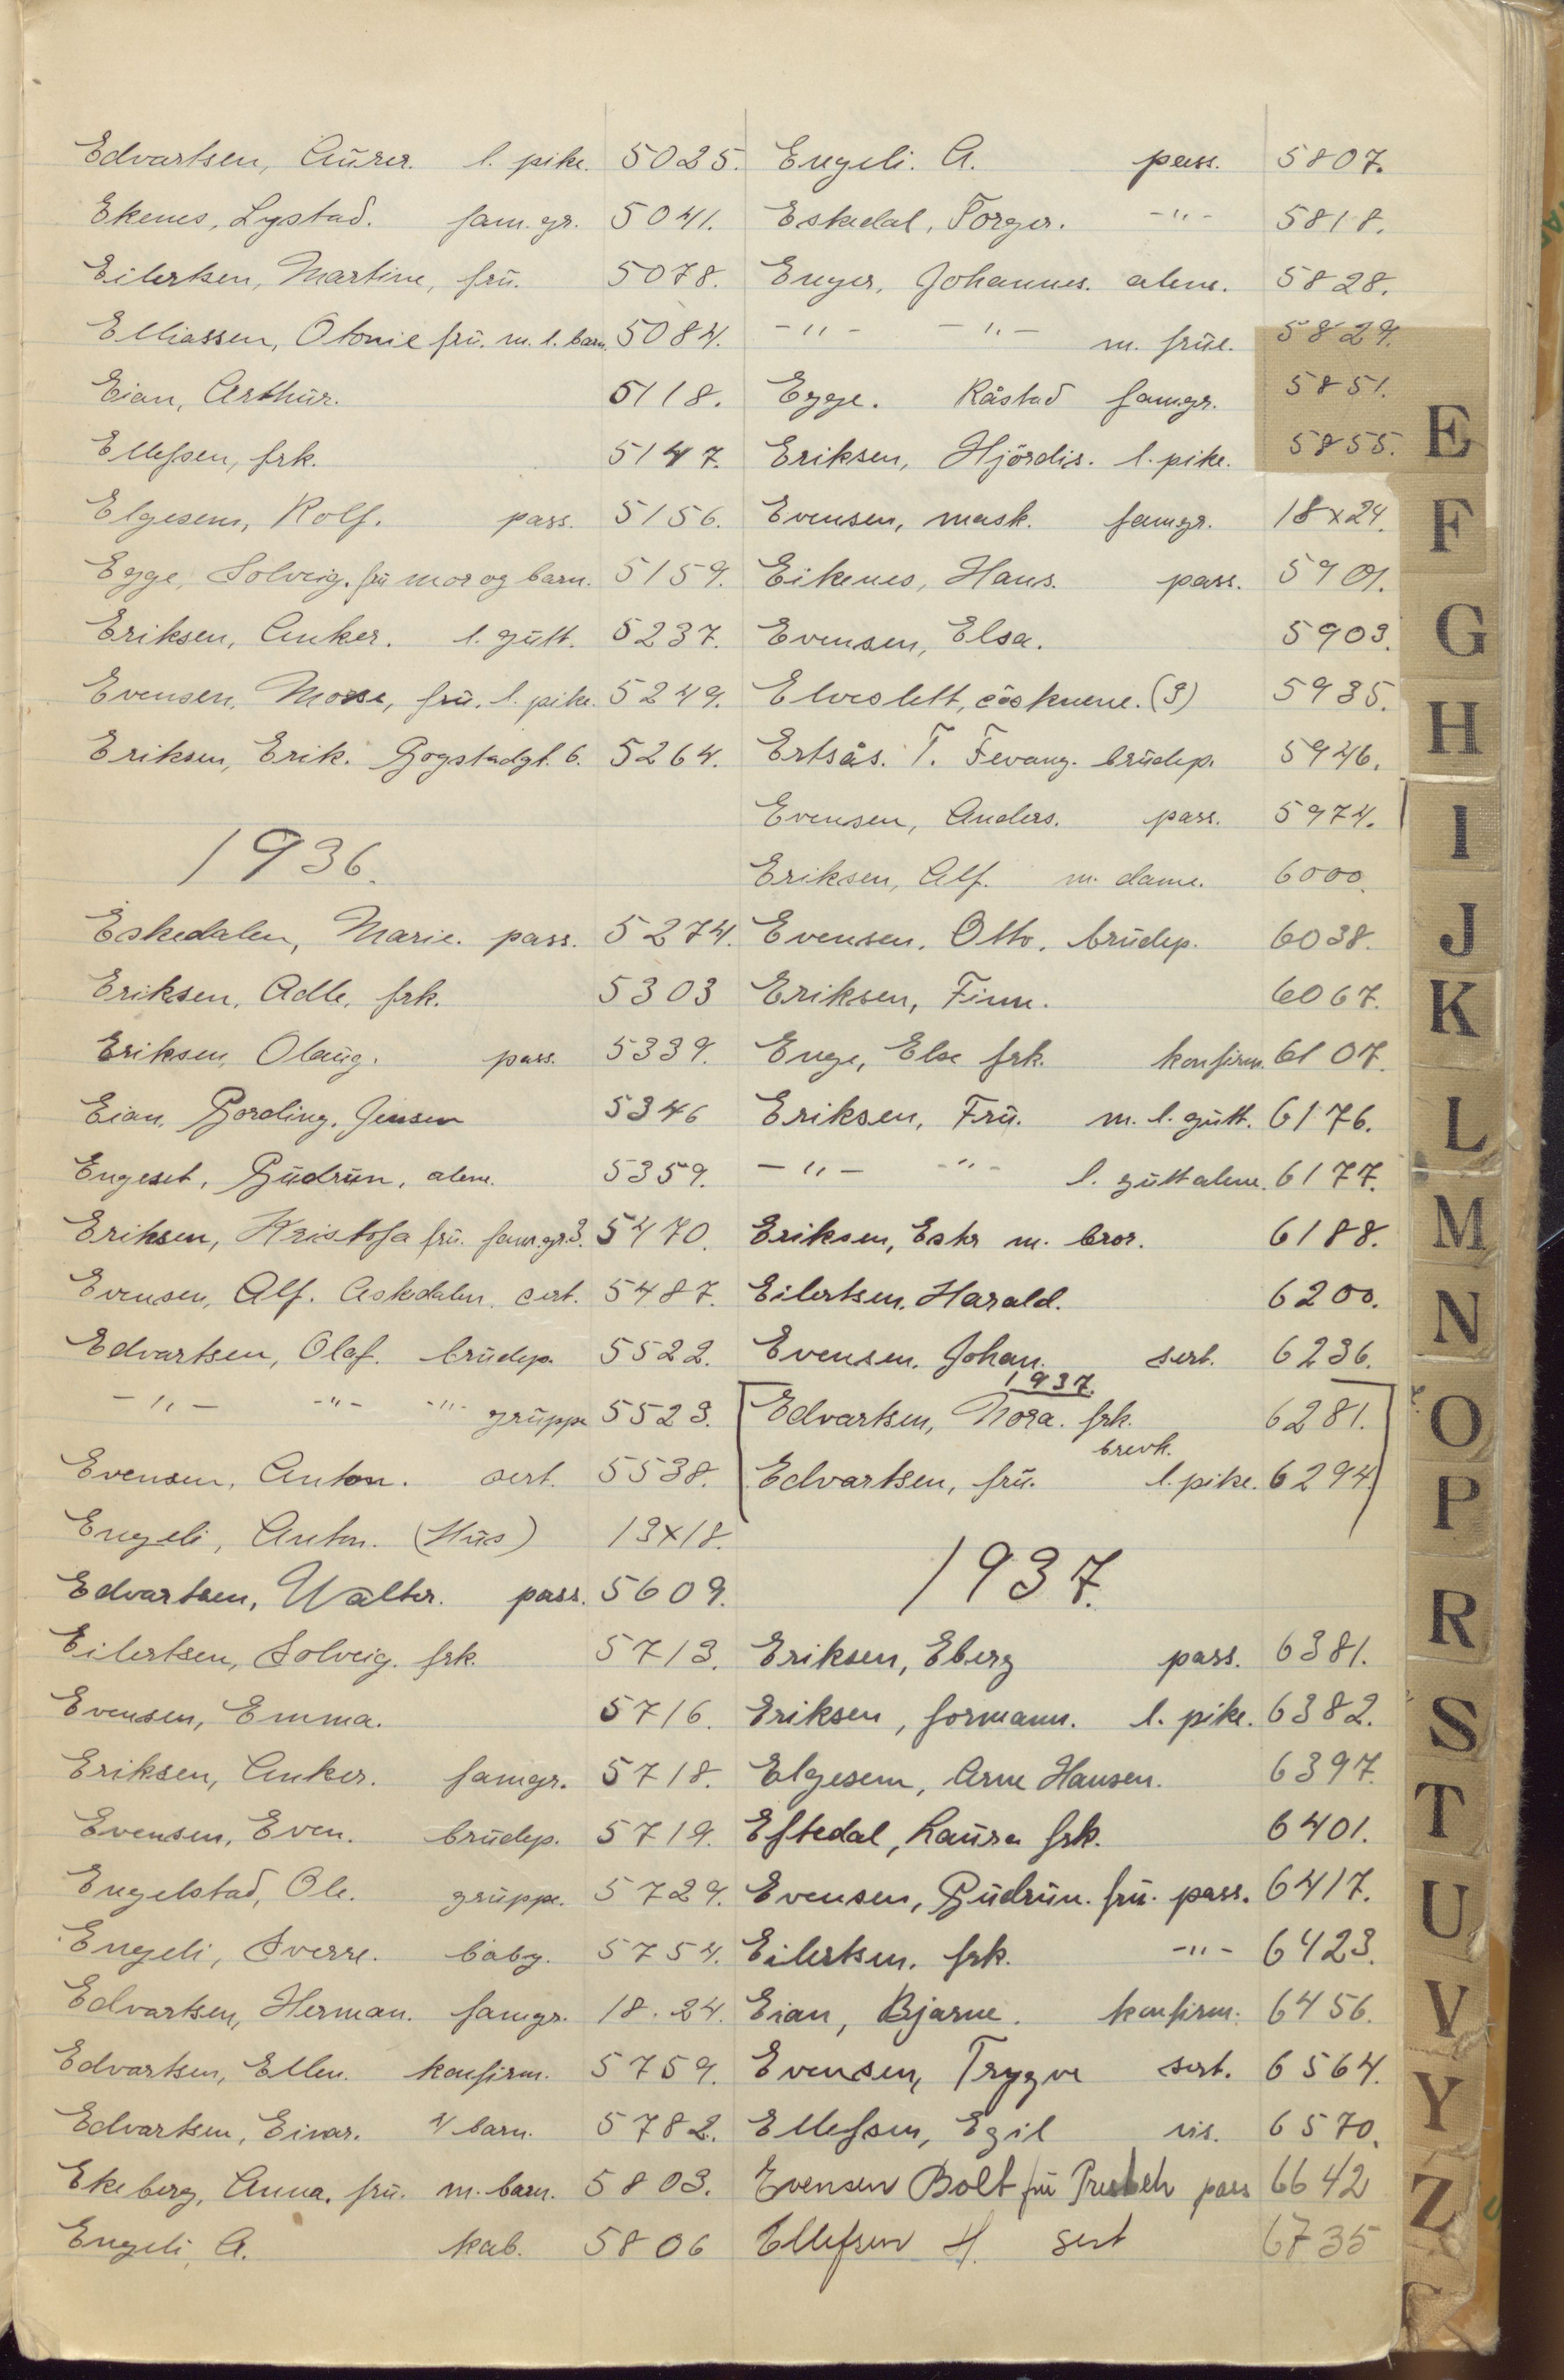 Edvartsen, Aurer. l. pike. 5025.
Ekenes, Lystad. fam. gr. 5041.
Eilertsen, Martine, frü. 5078.
Elliassen, Otonie frü. m. l. barn. 5084.
Eian, Arthür. 5118.
Ellefsen, frk. 5147.
Elgesem, Rolf. pass. 5156.
Egge, Solveig. frü mor og barn. 5159.
Eriksen, Anker. l. gütt. 5237.
Evensen, Mosse, frü. l. pike. 5249.
Eriksen, Erik. Gogstadgt. 6. 5264.
1936.
Eskedalen, Marie. pass. 5274.
Eriksen, Adle, frk. 5303
Eriksen, Olaüg. pass. 5339.
Eian, Gording, Jensen 5346
Engeset, Güdrün, alene. 5359.
Eriksen, Kristofa frü. fam.gr.3. 5470.
Evensen, Alf. Askedalen. sert. 5487.
Edvartsen, Olaf. brüdep. 5522.
-"- -"- -"- grüppe 5523.
Evensen, Anton. sert. 5538.
Engeli, Anton. (Hüs) 13x18.
Edvartsen, Walter. pass. 5609.
Eilertsen, Solveig. frk. 5713.
Evensen, Emma. 5716.
Eriksen, Anker. famgr. 5718.
Evensen, Even. brüdep. 5719.
Engelstad, Ole. grüppe. 5729.
Engeli, Sverre. baby. 5754.
Edvartsen, Herman. famgr. 18.24.
Edvartsen, Ellen. konfirm. 5759.
Edvartsen, Einar. barn. 5782.
Ekeberg, Anna, frü. m. barn. 5803.
Engeli A. kab. 5806
Engeli. A. pass. 5807.
Eskedal, Torger. -"- 5818.
Enger, Johannes. alene. 5828.
-"- -"- m. früe. 5829.
Egge. Råstad famgr. 5851.
Eriksen, Hjördis. l. pike. 5855.
Evensen, mask. famgr. 18x24.
Eikenes, Hans. pass. 5901.
Evensen, Elsa. 5903.
Elveslett, söskuene. (3) 5935.
Ertsås. T. Fevang. brüdep. 5946.
Evensen, Anders. pass. 5974.
Eriksen, Alf. m. dame. 6000.
Evensen, Otto. brüdep. 6038.
Eriksen, Finn. 6067.
Enge, Else frk. konfirm. 6107.
Eriksen, Frü. m. l. gütt. 6176.
-"- -"- l. gütt alene. 6177.
Eriksen, Ester m. bror. 6188.
Eilertsen, Harald. 6200.
Evensen, Johan. sert. 6236.
1937.
Edvartsen, Nora. frk. 6281.
brevk.
Edvartsen, frü. l. pike. 6294.
1937.
Eriksen, Eberg pass. 6381.
Eriksen, formann. l. pike. 6382.
Elgesem, Arne Hansen. 6397.
Eftedal, Laüra frk. 6401.
Evensen, Güdrün. frü. pass. 6417.
Eilertsen, frk. -"- 6423.
Eian, Bjarne. konfirm. 6456.
Evensen, Trygve sert. 6564.
Ellefsen, Egil vis. 6570.
Evensen Bolt frü pass 6642
Ellefsen H. sert 6735
E
F
G
H
I
J
K
L
M
N
O
P
R
S
T
U
V
Y
Z